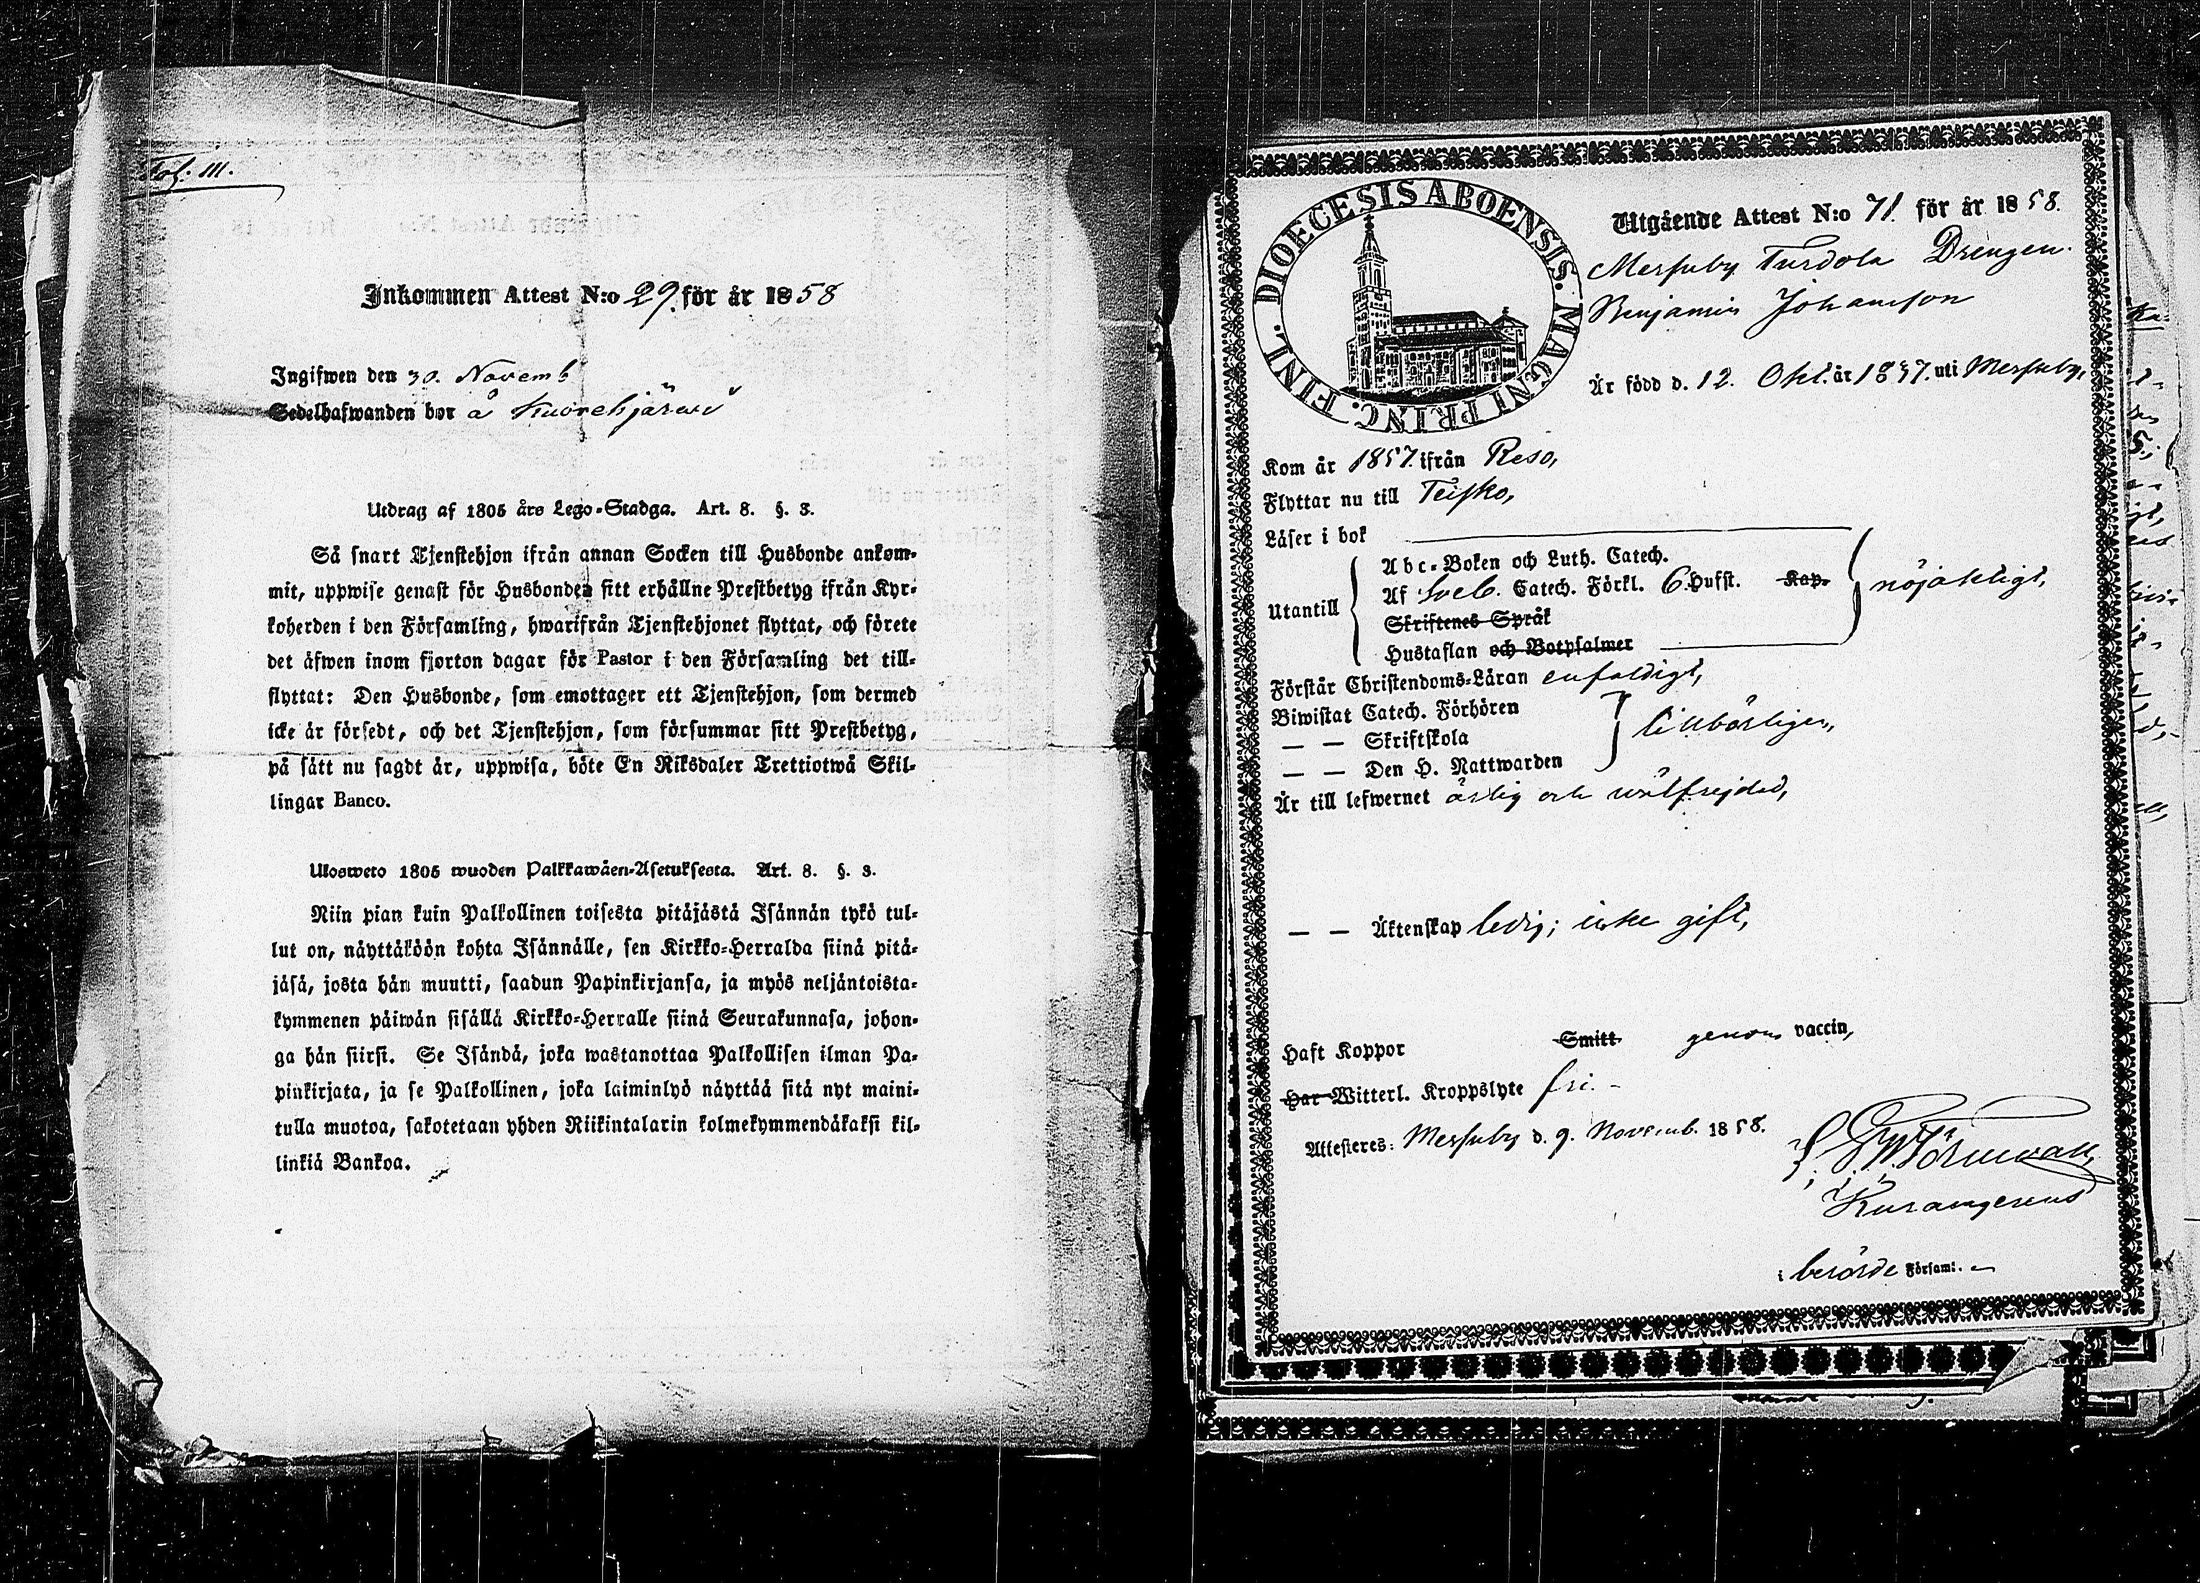 Fol: 111.
Inkommen Attest N:o 29. för år 1858
Ingifwen den 30. Novemb
Sedelhafwanden bor å Kuorehjärwi
Utdrag af 1805 års Lego-Stadga. Art. 8. §. 3.
Så snart Tjenstehjon ifrån annan Socken till Husbonde ankom-
mit, uppwise genast för Husbonden sitt erhållne Prestbetyg ifrån Kyr-
koherden i den Församling, hwarifrån Tjenstehjonet flyttat, och förete
det äfwen inom fjorton dagar för Pastor i den Församling det till-
flyttat: Den Husbonde, som emottager ett Tjenstehjon, som dermed
icke är försedt, och det Tjenstehjon, som försummar sitt Prestbetyg,
på sätt nu sagdt är, uppwisa, böte En Riksdaler Trettiotwå Skil-
lingar Banco.
Ulosweto 1805 wuoden Palkkawäen-Asetuksesta. Art. 8. §. 3.
Niin pian kuin Palkollinen toisesta pitäjästä Isännän tykö tul-
lut on, näyttäköön kohta Isännälle, sen Kirkko-Herralda siinä pitä-
jäsä, josta hän muutti, saadun Papinkirjansa, ja myös neljäntoista-
kymmenen päiwän sisällä Kirkko-Herralle siinä Seurakunnasa, johon-
ga hän siirsi. Se Isändä, joka wastanottaa Palkollisen ilman Pa-
pinkirjata, ja se Palkollinen, joka laiminlyö näyttää sitä nyt maini-
tulla muotoa, sakotetaan yhden Riikintalarin kolmekymmendäkaksi kil-
linkiä Bankoa.
DIOECESIS ABOENSIS. MAGNI PRINC. FINL.
Utgående Attest N:o 71. för år 1858.
Mersuby Turdola Drengen
Benjamin Johansson
Är född d. 12. Okt. år 1837. uti Mersuby,
Kom år 1857. ifrån Reso,
Flyttar nu till Teisko,
Läser i bok
Utantill
Abc-Boken och Luth. Catech.
Af Sveb. Catech. Förkl. 6. Hufst. Kap.
Skriftenes Språk
Hustaflan och Botpsalmer
nöjaktligt,
Förstår Christendoms-Läran enfaldigt,
Biwistat Catech. Förhören
— — Skriftskola
— — Den H. Nattwarden
tillbörligen,
Är till lefwernet ärlig och wälfrejdad,
— — Äktenskap ledig; icke gift,
Haft Koppor Smitt genom vaccin,
Har Witterl. Kroppslyte fri.-
Attesteres: Mersuby d. 9. Novemb. 1858.
i berörde Församl.